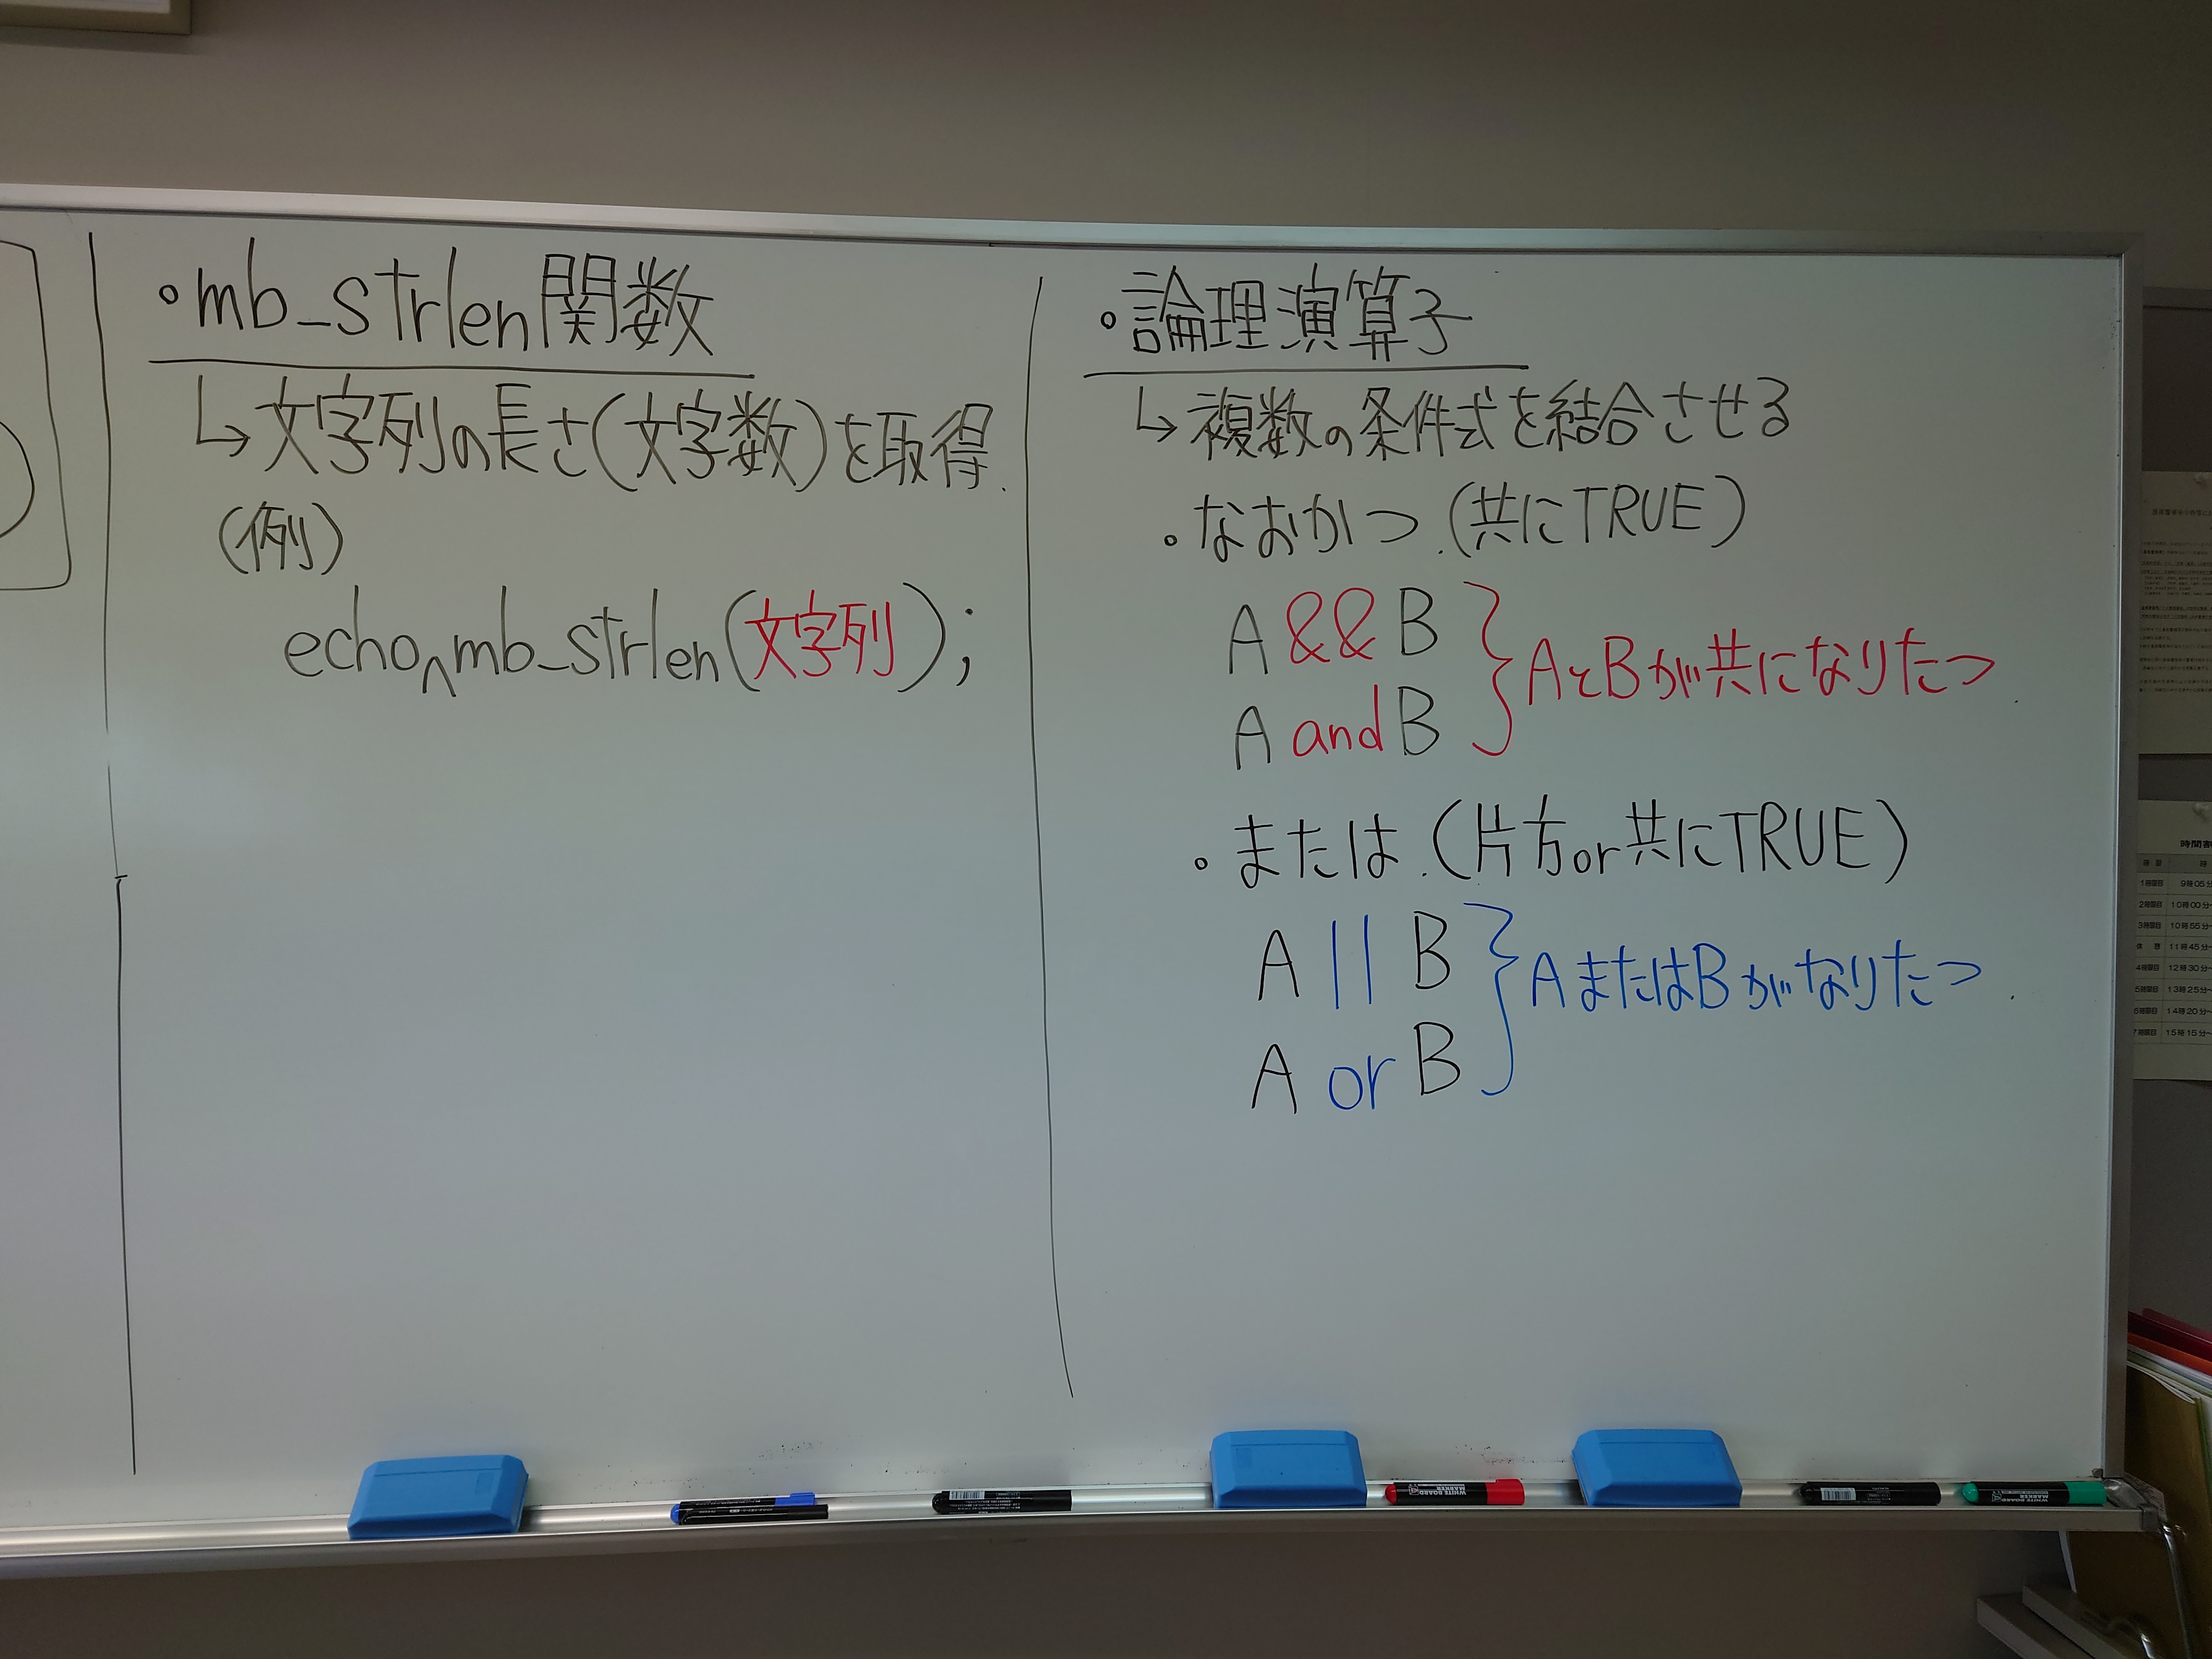 ・mb_strlen関数
↳文字列の長さ(文字数)を取得.
(例)
echo^mb_strlen(文字列);
・論理演算子
↳複数の条件式を結合させる
・なおかつ.(共にTRUE)
A && B
A and B
} AとBが共になりたつ.
・または.(片方or共にTRUE)
A || B
A or B
} AまたはBがなりたつ.
時間割
時
1時限目 9時05分~
2時限目 10時00分~
3時限目 10時55分~
休 憩 11時45分~
4時限目 12時30分~
5時限目 13時25分~
6時限目 14時20分~
7時限目 15時15分~
WHITE BOARD
MARKER
WHITE BOARD
MARKER